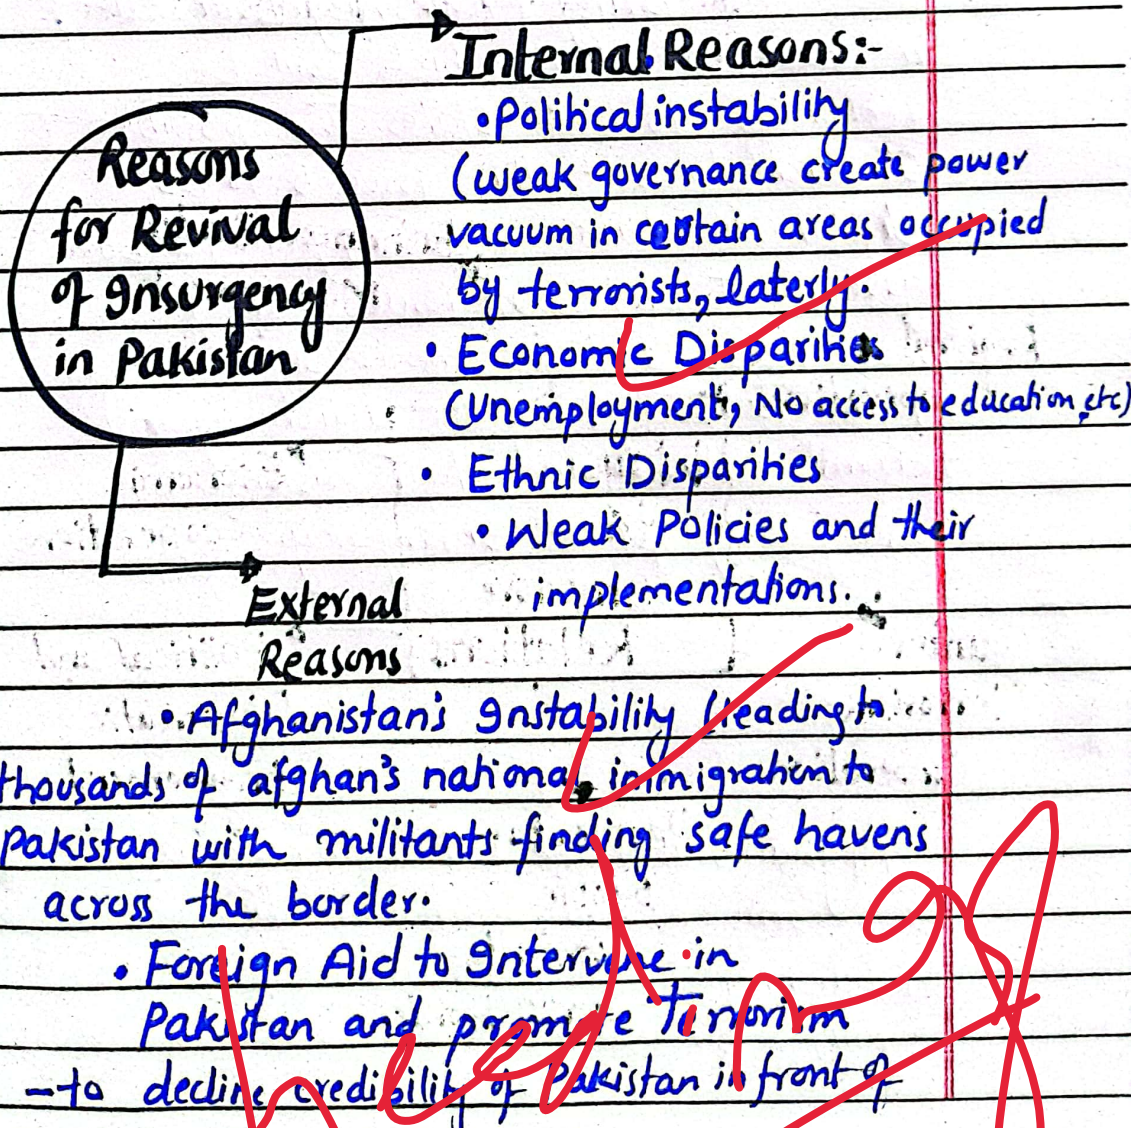 Internal Reasons:-
• Political instability
(weak governance create power
vacuum in certain areas occupied
by terrorists, laterly.
• Economic Disparities
(Unemployment, No access to education, etc)
• Ethnic Disparities
• Weak Policies and their
implementations.
Reasons
for Revival
of Insurgency
in Pakistan
External
Reasons
• Afghanistan's Instability (leading to
thousands of afghan's national immigration to
Pakistan with militants finding safe havens
across the border.
• Foreign Aid to Intervene in
Pakistan and promote Terrorism
- to decline credibility of Pakistan in front of